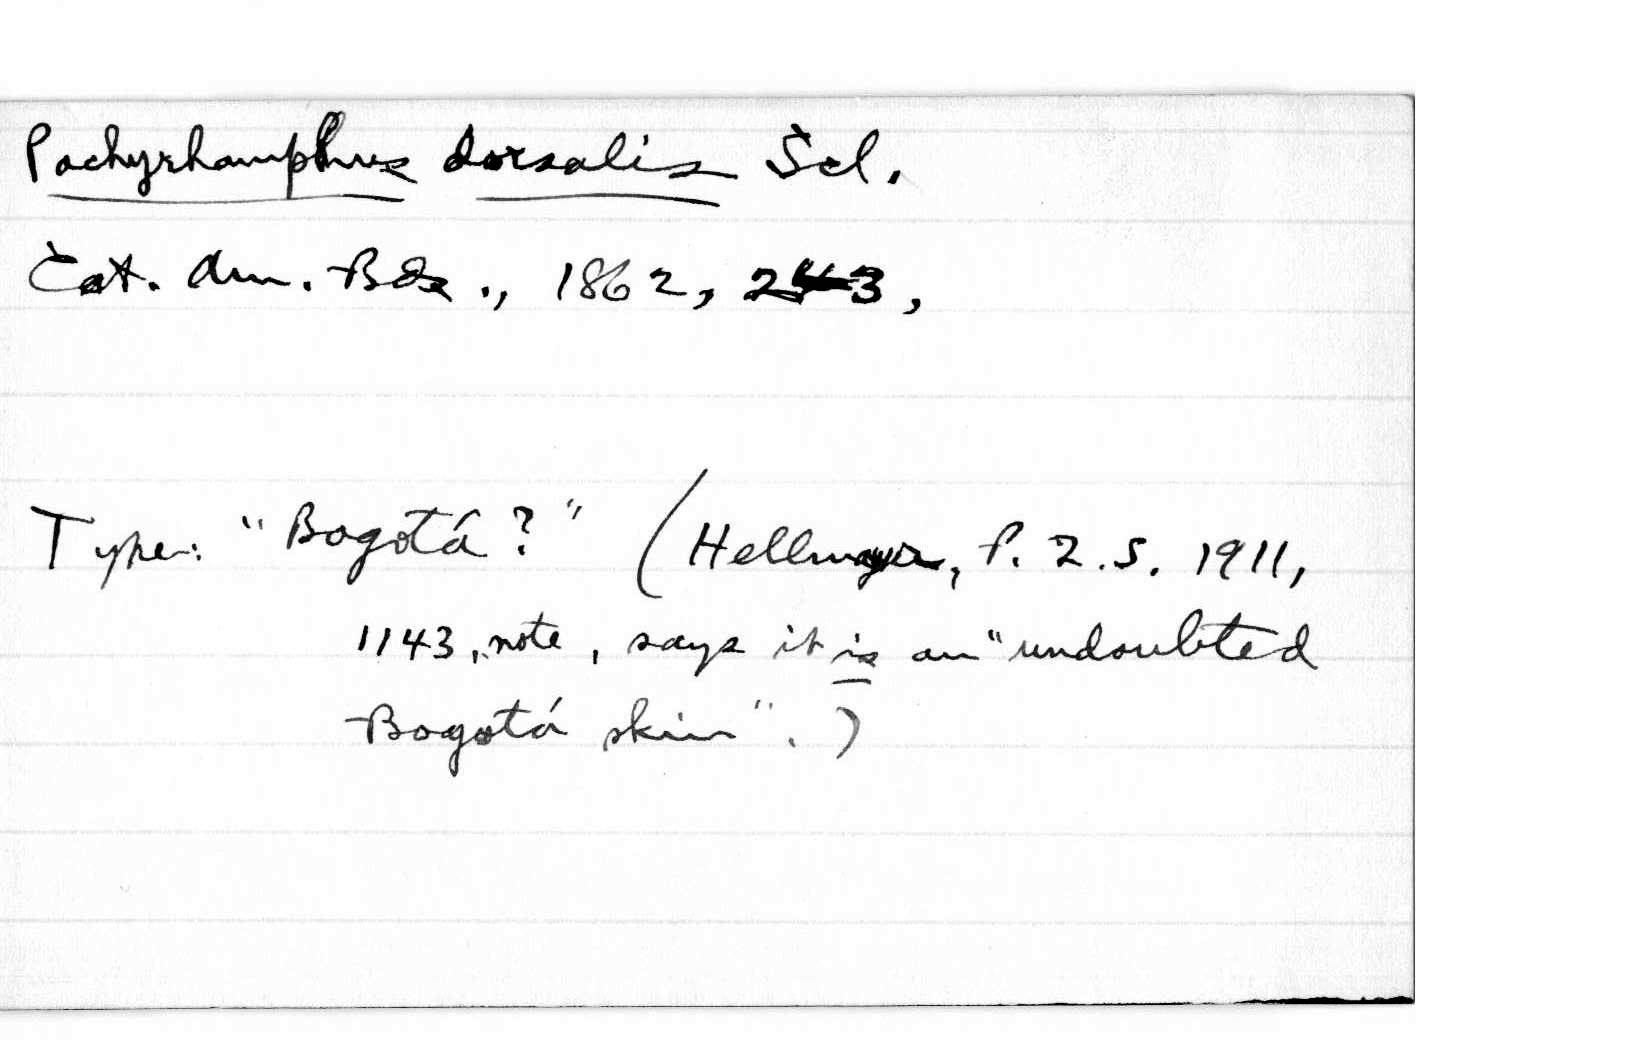 Pachyrhamphus dorsalis Scl.
Cat. Am. Bds., 1862, 243,
Type: "Bogotá?" (Hellmayr, P. Z. S. 1911,
1143, note, says it is an "undoubted
Bogotá skin".)